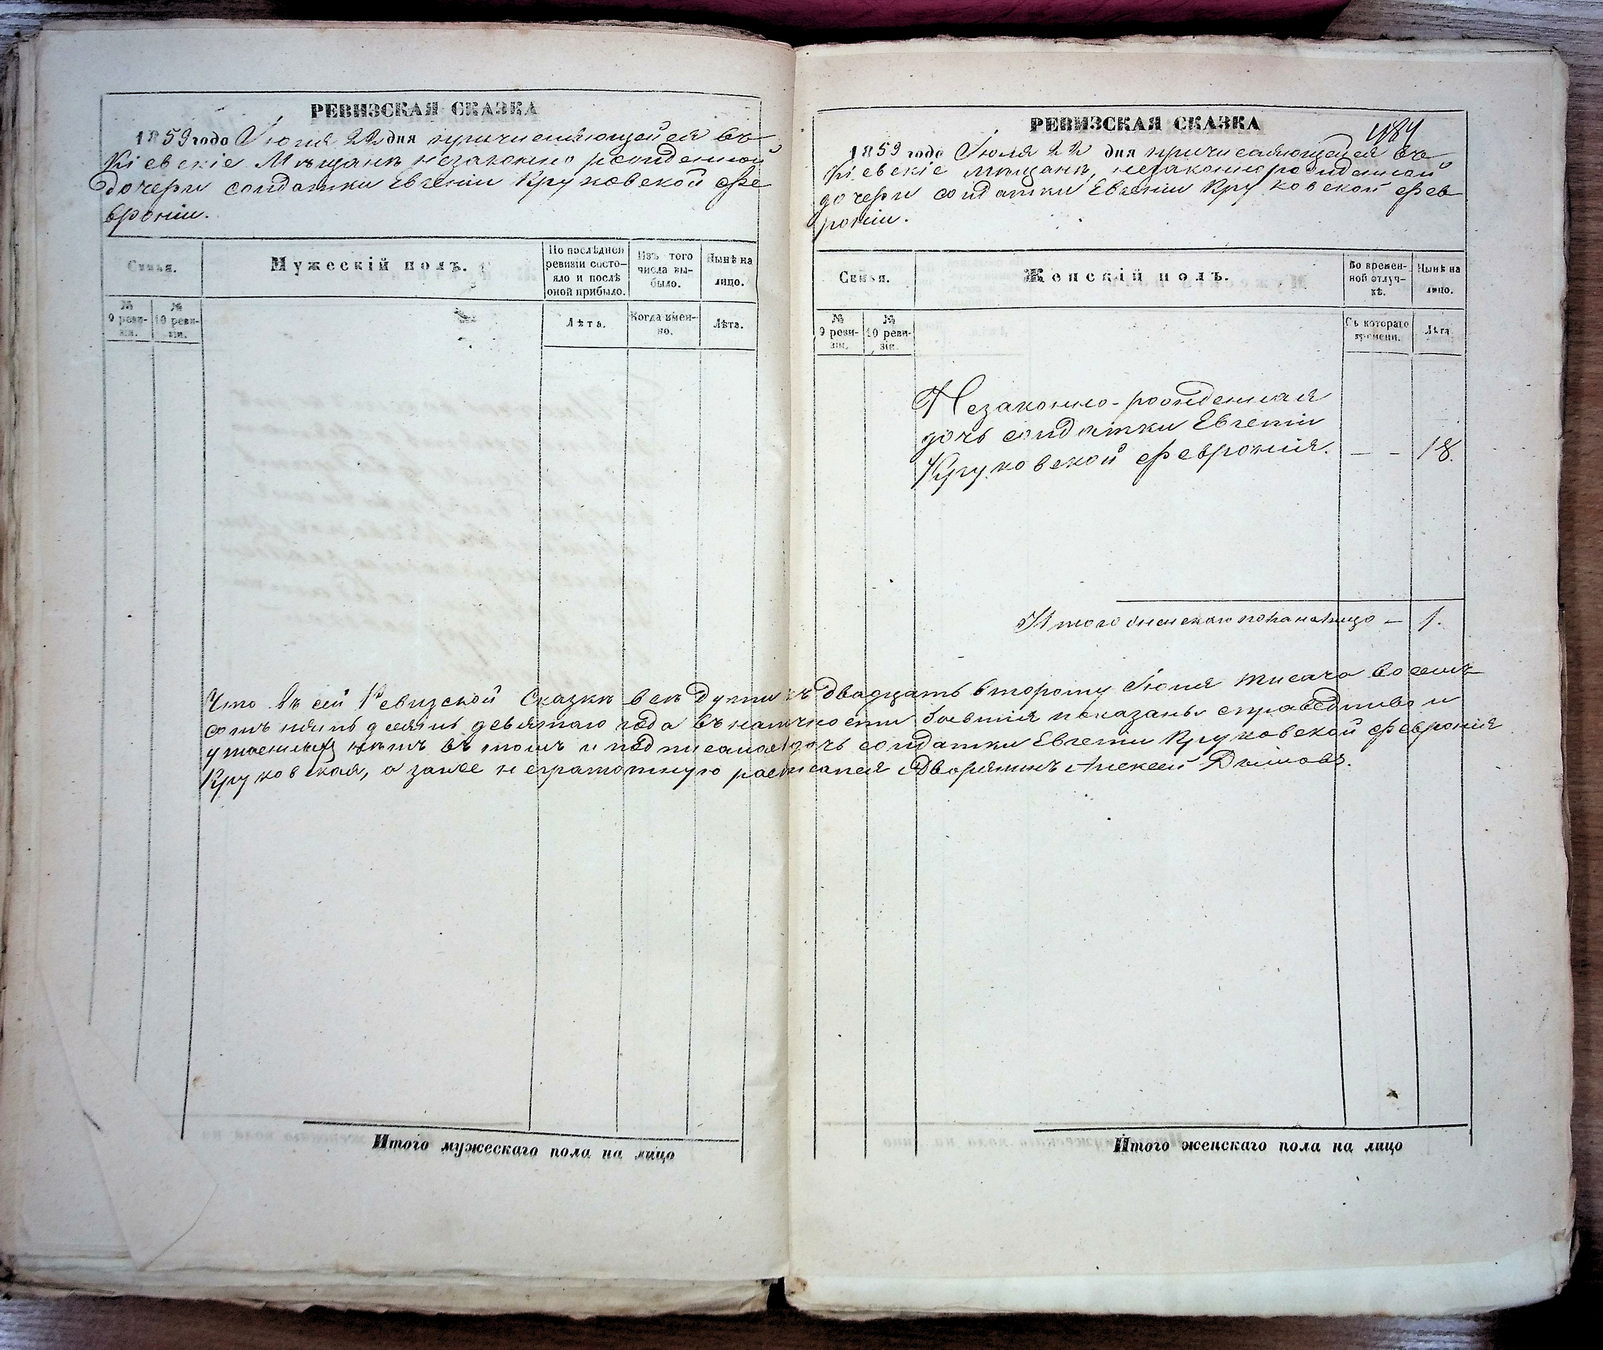 РЕВИЗСКАЯ СКАЗКА
1859 года Іюля 22 дня причисляющейся въ
Кіевскіе Мѣщанк незаконно рожденной
дочери солдатки Евгеніи Круковской Фе
вроніи.
Семья.
Мужескій полъ.
По послѣдней ревизіи состояло и послѣ оной прибыло.
Изъ того числа выбыло.
Нынѣ на лицо.
№ 9 ревизіи.
№ 10 ревизіи.
Лѣта.
Когда именно.
Лѣта.
Итого мужескаго пола на лицо
484
РЕВИЗСКАЯ СКАЗКА
1859 года Іюля 22 дня причисляющейся въ
Кіевскіе мѣщанк незаконнорожденной
дочери солдатки Евгеніи Круковской Фев
роніи.
Семья.
Женскій полъ.
Во временной отлучкѣ.
Нынѣ на лицо.
№ 9 ревизіи.
№ 10 ревизіи.
Съ котораго времени.
Лѣта.
Незаконно-рожденная
дочь солдатки Евгеніи
Круковской Февронія. — – 18.
Итого женскаго пола на лицо — 1.
Что въ сей Ревизской Сказкѣ всѣ души къ двадцать второму Іюля тысяча восемь
сотъ пятьдесятъ девятаго года въ наличности бывшія показаны справедливо и
утаенныхъ нѣтъ въ томъ и подписалась дочь солдатки Евгеніи Круковской Февронія
Круковская, а за нее неграмотную росписался Дворянинъ Алексей
Итого женскаго пола на лицо